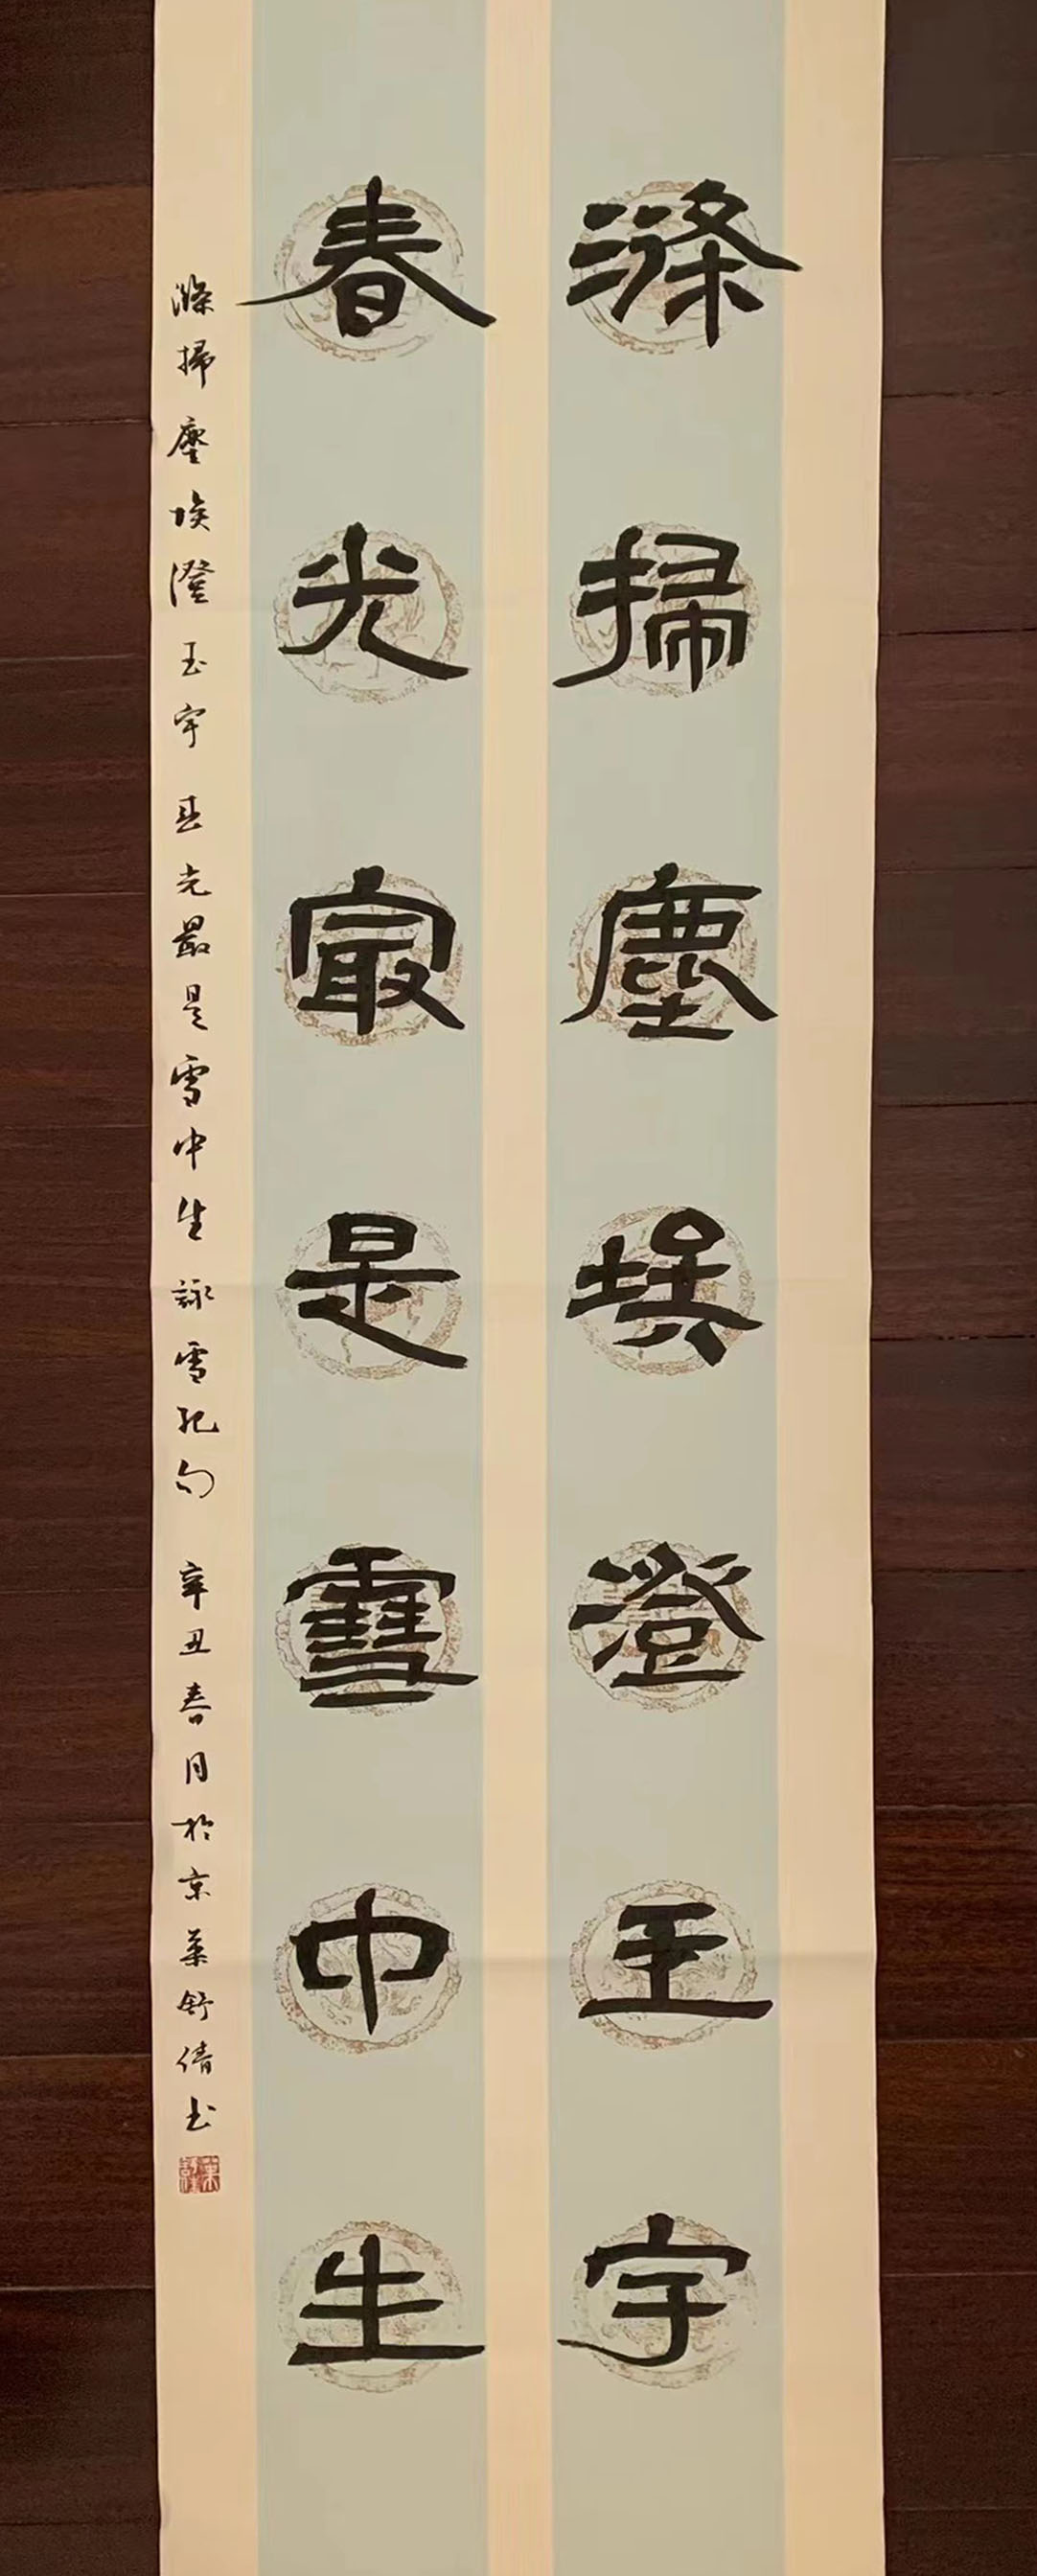 滌掃塵埃澄玉宇
春光最是雪中生
滌掃塵埃澄玉宇 春光最是雪中生 詠雪記句 辛丑春月於京 葉舒倩书